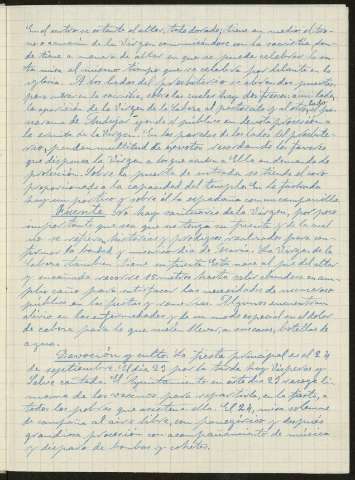 En el centro se ostenta el altar, todo dorado; tiene en medio el tro-
no o camarín de la Virgen comunicándose con la sacristía don-
de tiene a manera de altar en que se puede celebrar la san-
ta misa al mismo tiempo que se celebra por delante en la
iglesia. A los lados del presbiterio se abren dos puertas
para entrar en la sacristía, sobre las cuales hay dos frescos: a un lado,
la aparición de la Virgen de la Cabeza al pastorcito y al otro el pa-
norama de Andújar yendo el público en devota procesión a
la ermita de la Virgen. En las paredes de los lados del presbite-
rio, penden multitud de exvotos recordando los favores
que dispensa la Virgen a los que acuden a Ella en demanda de
protección. Sobre la puerta de entrada se tiende el coro
proporcionado a la capacidad del templo. En la fachada
hay un portico y sobre él la espadaña con una campanilla.
Fuente. No hay santuario de la Virgen, por poco
importante que sea que no tenga su fuente y de la cual
no se refieran historias y prodigios realizados para en-
fermos de todas y de Navarra. La Virgen de la
Cabeza también tiene su fuente. Esta nace al pie del altar
y encañada recorre 15 metros hasta salir afuera en am-
plio caño para satisfacer las necesidades de numeroso
público en las fiestas y romerías. Algunos encuentran
alivio en las enfermedades y de un modo especial en el dolor
de cabeza para lo que suelen llevar, a sus casas, botellas de
agua.
Devoción y culto. La fiesta principal es el 24
de septiembre. El día 23 por la tarde hay Vísperas y
Salve cantada. El Ayuntamiento en este día 23 recoge li-
mosna de los vecinos para repartirla, en la fiesta, a
todos los pobres que asisten a ella. El 24, misa solemne
de campaña al aire libre, con panegírico y después
grandiosa procesión con acompañamiento de música
y disparo de bombas y cohetes.